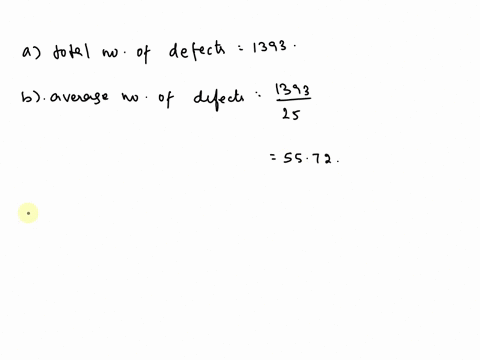 a) total no. of defects = 1393.
b). average no. of defects = 1393/25
= 55.72.